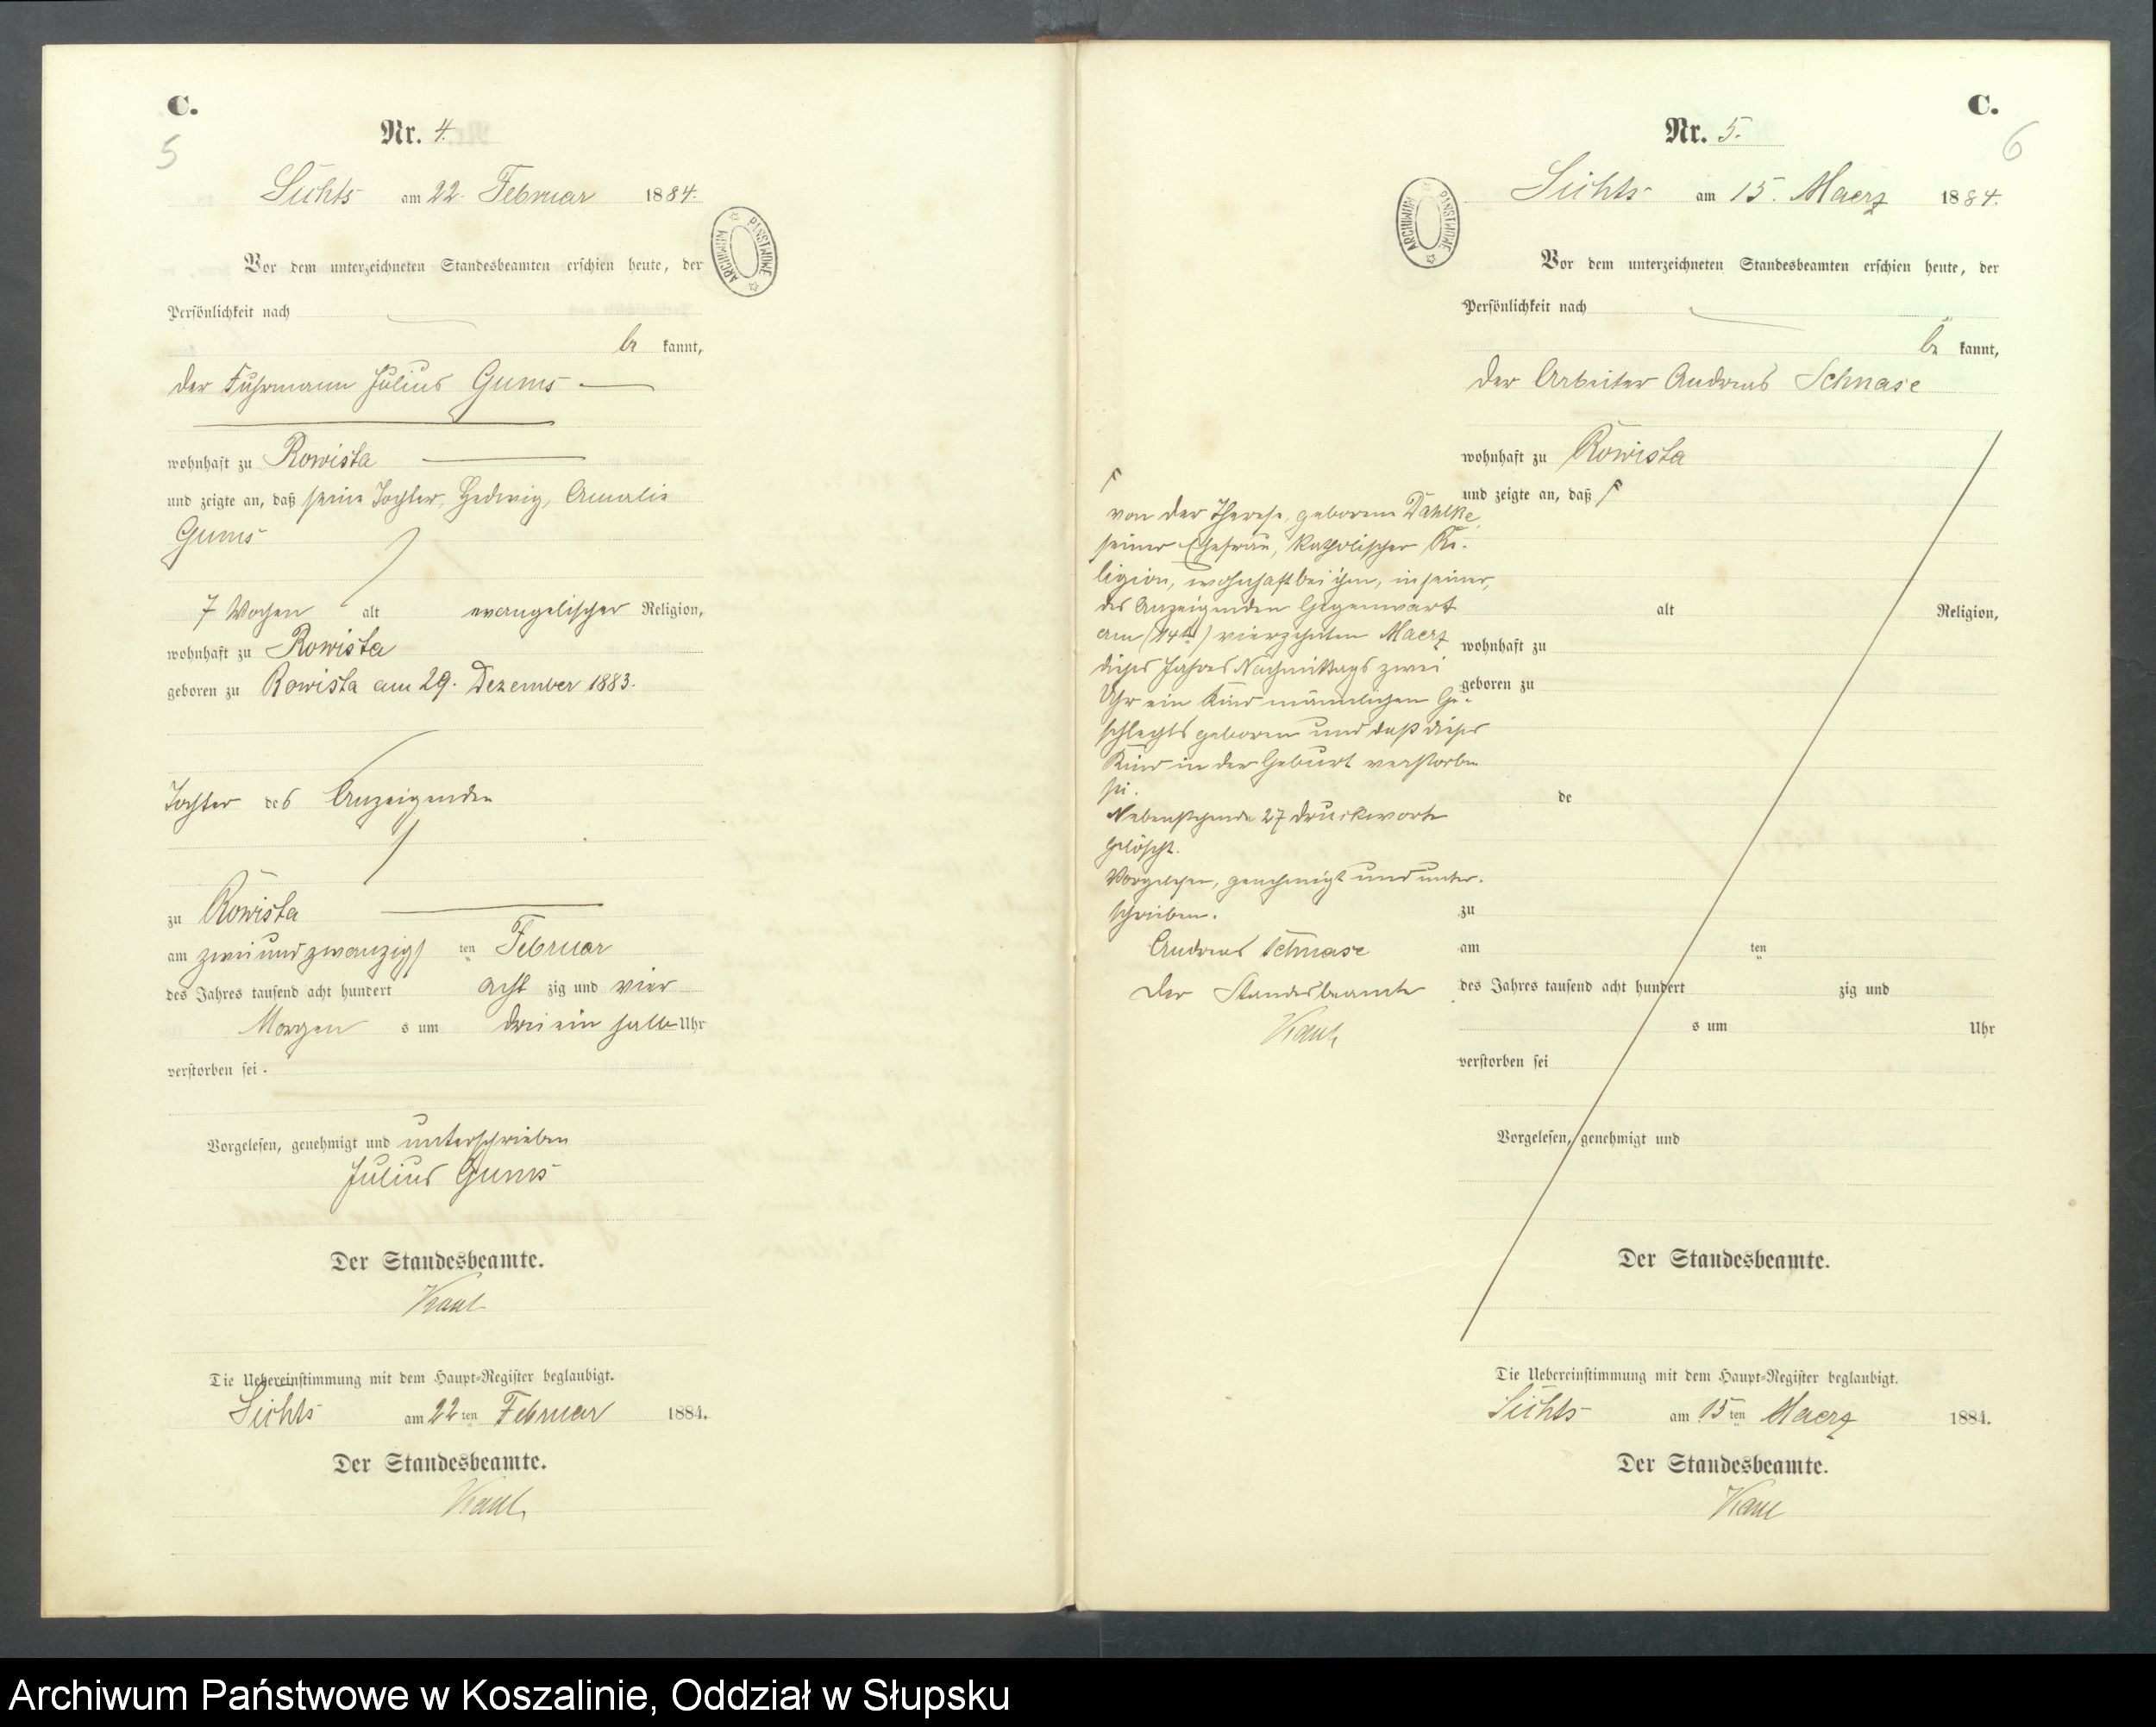 C.
5
Nr. 4.
Lichts am 22. Februar 1884.
Vor dem unterzeichneten Standesbeamten erschien heute, der
Persönlichkeit nach
be kannt,
der Fuhrmann Julius Gums
wohnhaft zu Rowista
und zeigte an, daß seine Tochter, Hedwig, Amalie
Gums
7 Wochen alt evangelischer Religion,
wohnhaft zu Rowista
geboren zu Rowista am 29. Dezember 1883.
Tochter des Anzeigenden
zu Rowista
am zweiundzwanzigs ten Februar
des Jahres tausend acht hundert acht zig und vier
Morgen s um drei ein halb Uhr
verstorben sei.
Vorgelesen, genehmigt und unterschrieben
Julius Gums
Der Standesbeamte.
Kaul
Die Uebereinstimmung mit dem Haupt-Register beglaubigt.
Lichts am 22 ten Februar 1884.
Der Standesbeamte.
Kaul
ARCHIWUM PAŃSTWOWE
C.
6
Nr. 5.
Lichts am 15. Maerz 1884.
Vor dem unterzeichneten Standesbeamten erschien heute, der
Persönlichkeit nach
be kannt,
der Arbeiter Andreas Schnase
wohnhaft zu Rowista
und zeigte an, daß
von der Therese, geborene Dahlke,
seiner Ehefrau, katholischer Re-
ligion, wohnhaft bei ihm, in seiner,
des Anzeigenden Gegenwart
am (14t) vierzehnten Maerz
dieses Jahres Nachmittags zwei
Uhr ein Kind männlichen Ge-
schlechts geboren und daß dieses
Kind in der Geburt verstorben
sei.
Nebenstehende 27 Druckworte
gelöscht.
Vorgelesen, genehmigt und unter-
schrieben.
Andreas Schnase
Der Standesbeamte
Kaul
alt Religion,
wohnhaft zu
geboren zu
de
zu
am ten
des Jahres tausend acht hundert zig und
s um Uhr
verstorben sei
Vorgelesen, genehmigt und
Der Standesbeamte.
Die Uebereinstimmung mit dem Haupt-Register beglaubigt.
Lichts am 15 ten Maerz 1884.
Der Standesbeamte.
Kaul
ARCHIWUM PAŃSTWOWE
Archiwum Państwowe w Koszalinie, Oddział w Słupsku